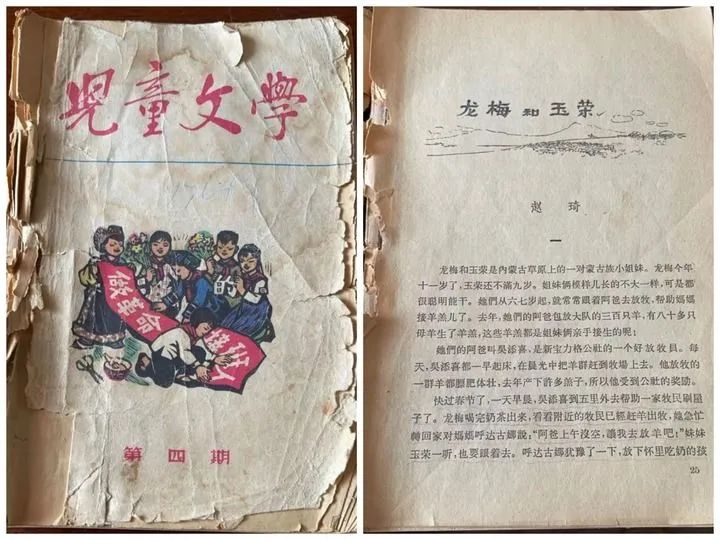 兒童文學
1964
做革命
的
接班人
第四期
龙梅和玉荣
赵琦
一
龙梅和玉荣是內蒙古草原上的一对蒙古族小姐妹。龙梅今年
十一岁了，玉荣还不滿九岁。姐妹俩模样儿长的不大一样，可是都
很聪明能干。她們从六七岁起，就常常跟着阿爸去放牧，帮助媽媽
接羊羔儿了。去年，她們的阿爸包放大队的三百只羊，有八十多只
母羊生了羊羔，这些羊羔都是姐妹俩亲手接生的呢；
她們的阿爸叫吳添喜，是新宝力格公社的一个好放牧員。每
天，吳添喜都一早起床，在晨光中把羊群赶到牧場上去。他放牧的
一群羊都膘肥体壮，去年产下許多羔子，所以他受到公社的奖励。
快过春节了，一天早晨，吳添喜到五里外去帮助一家牧民刷屋
子了。龙梅喝完奶茶出来，看看附近的牧民已經赶羊出牧，她急忙
轉回家对媽媽呼达古娜說：“阿爸上午沒空，讓我去放羊吧；”妹妹
玉荣一听，也要跟着去。呼达古娜犹豫了一下，放下怀里吃奶的孩
25